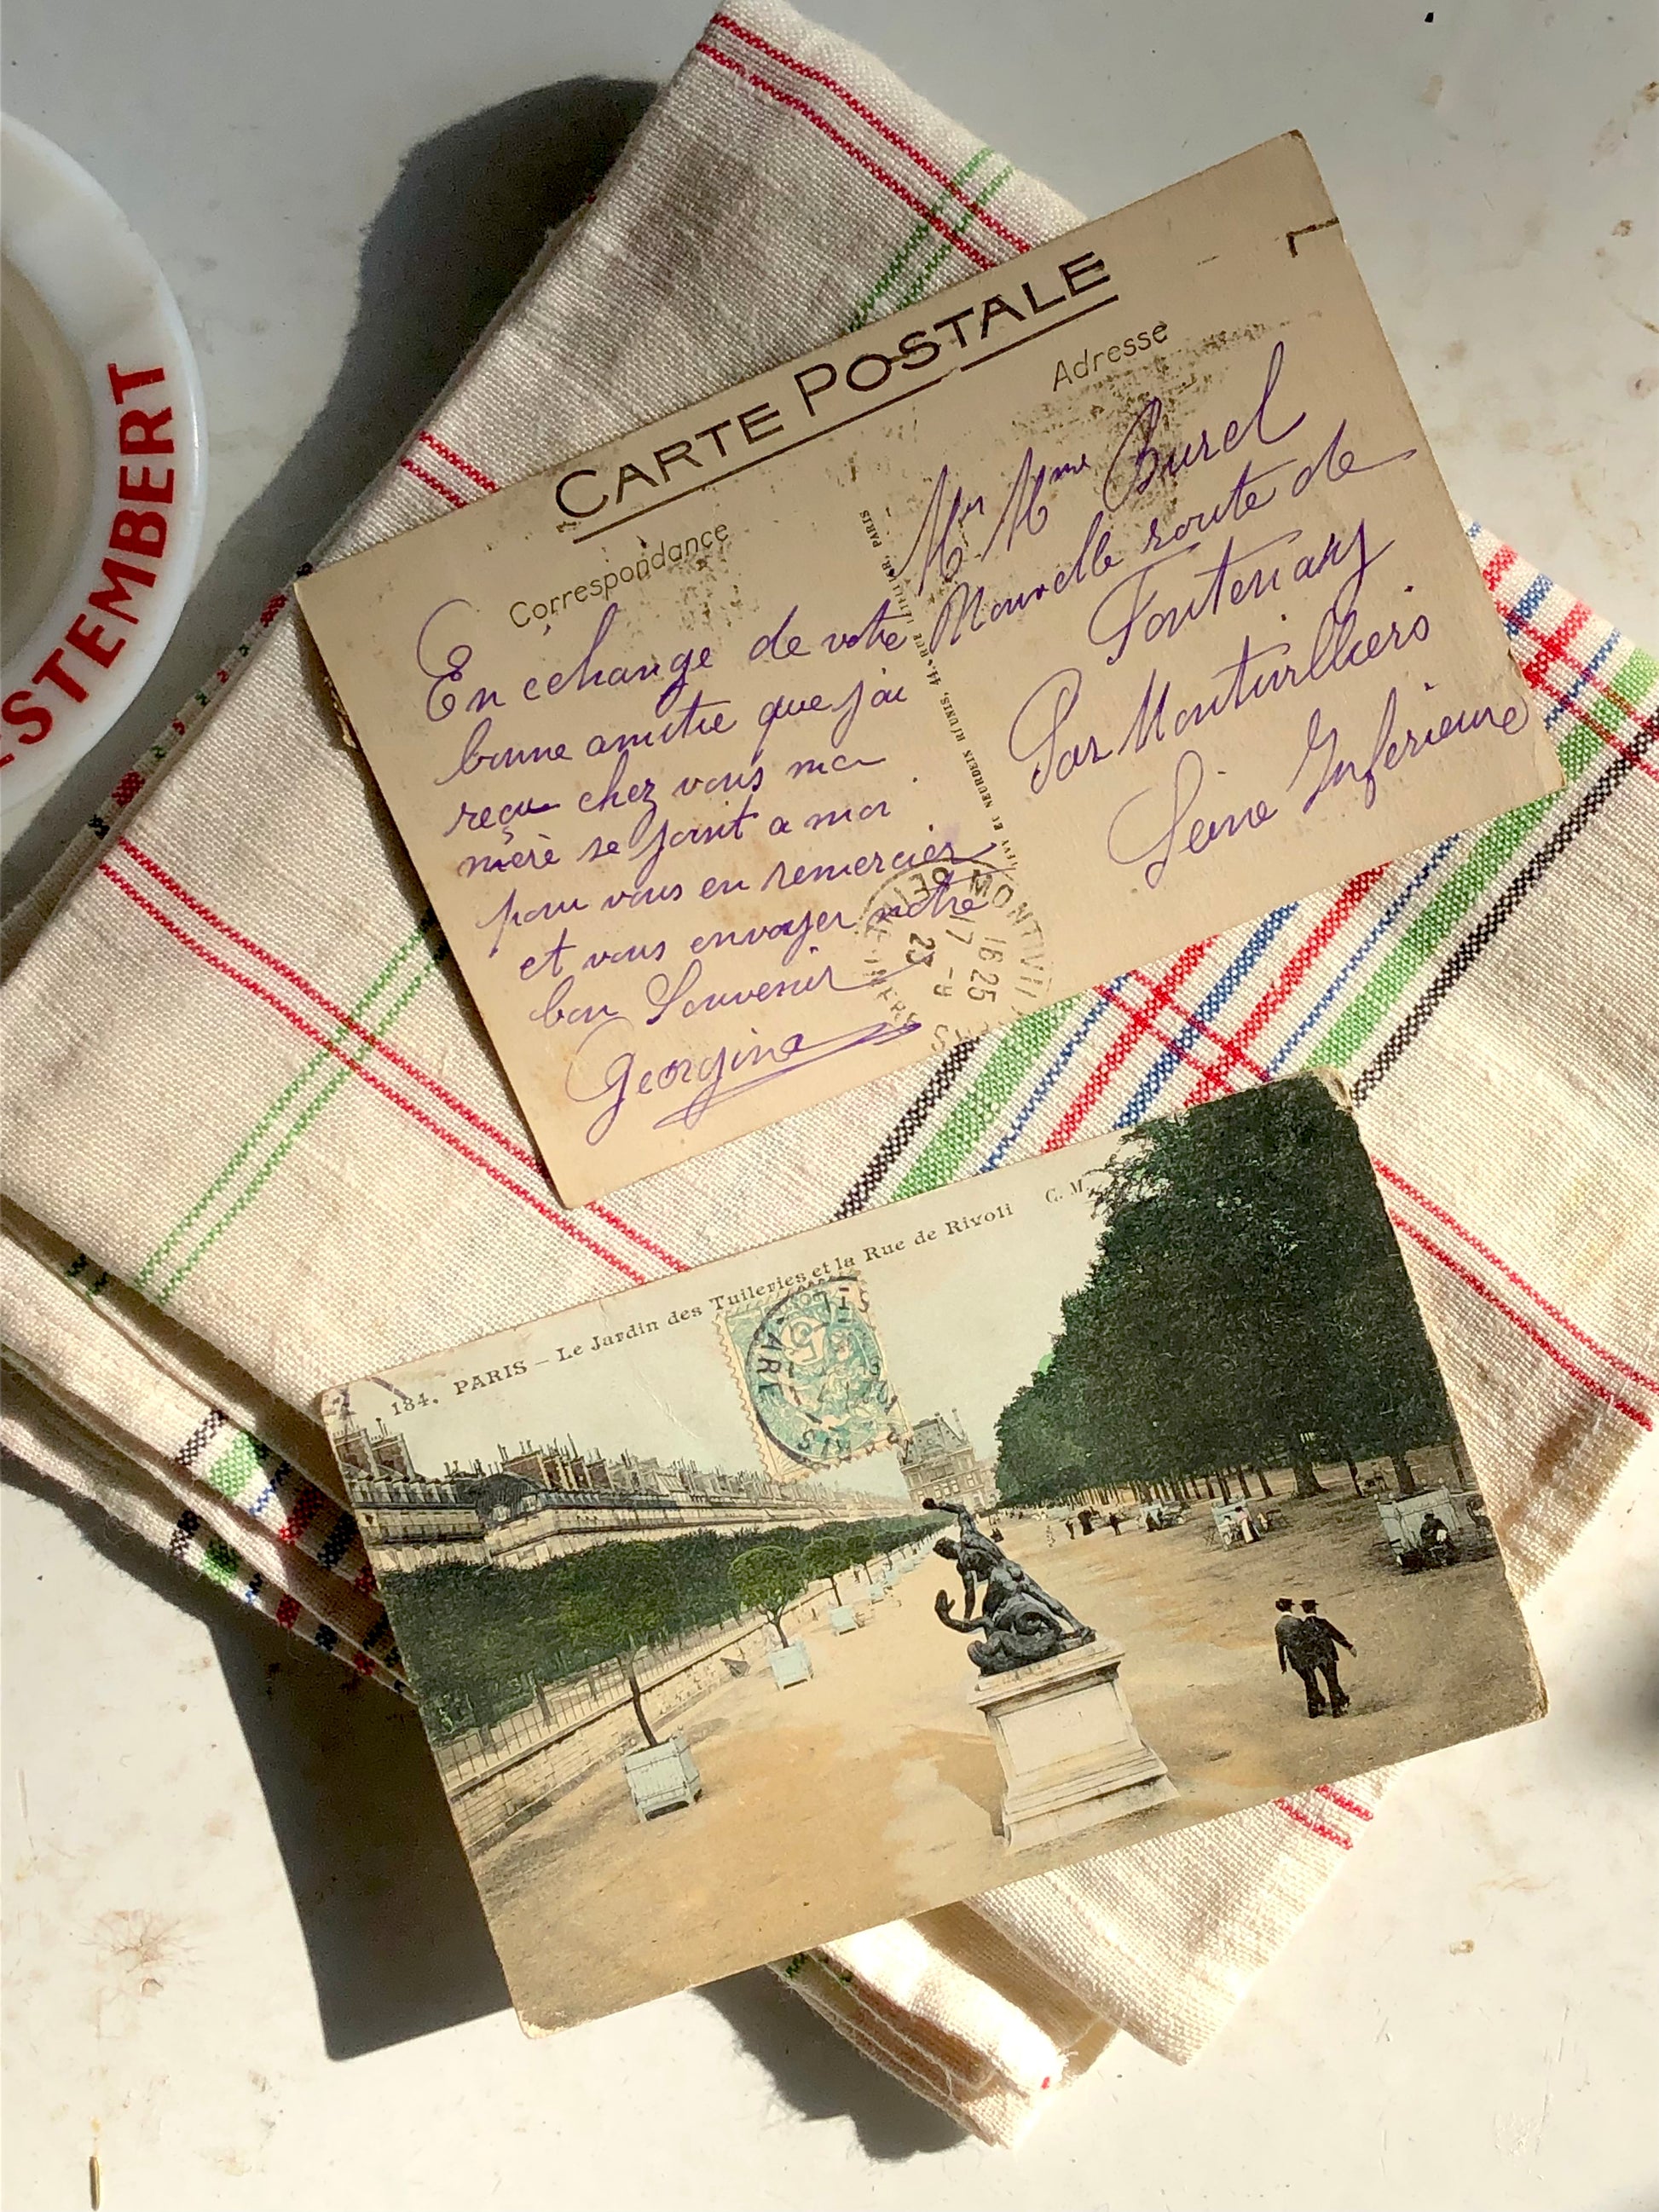 ESTEMBERT
CARTE POSTALE
Correspondance
Adresse
En échange de votre
bonne amitie que j'ai
reçu chez vous ma
mère se joint a moi
pour vous en remercier
et vous envoyer notre
bon Souvenir
Georgina
LÉVY ET NEURDEIN RÉUNIS, 44, RUE LETELLIER, PARIS
Mr Mme Burel
Nouvelle route de
Fontenay
Par Montivilliers
Seine Inferieure
MONTIVILLI
16 25
7 -9
23
184. PARIS - Le Jardin des Tuileries et la Rue de Rivoli C. M.
PARIS